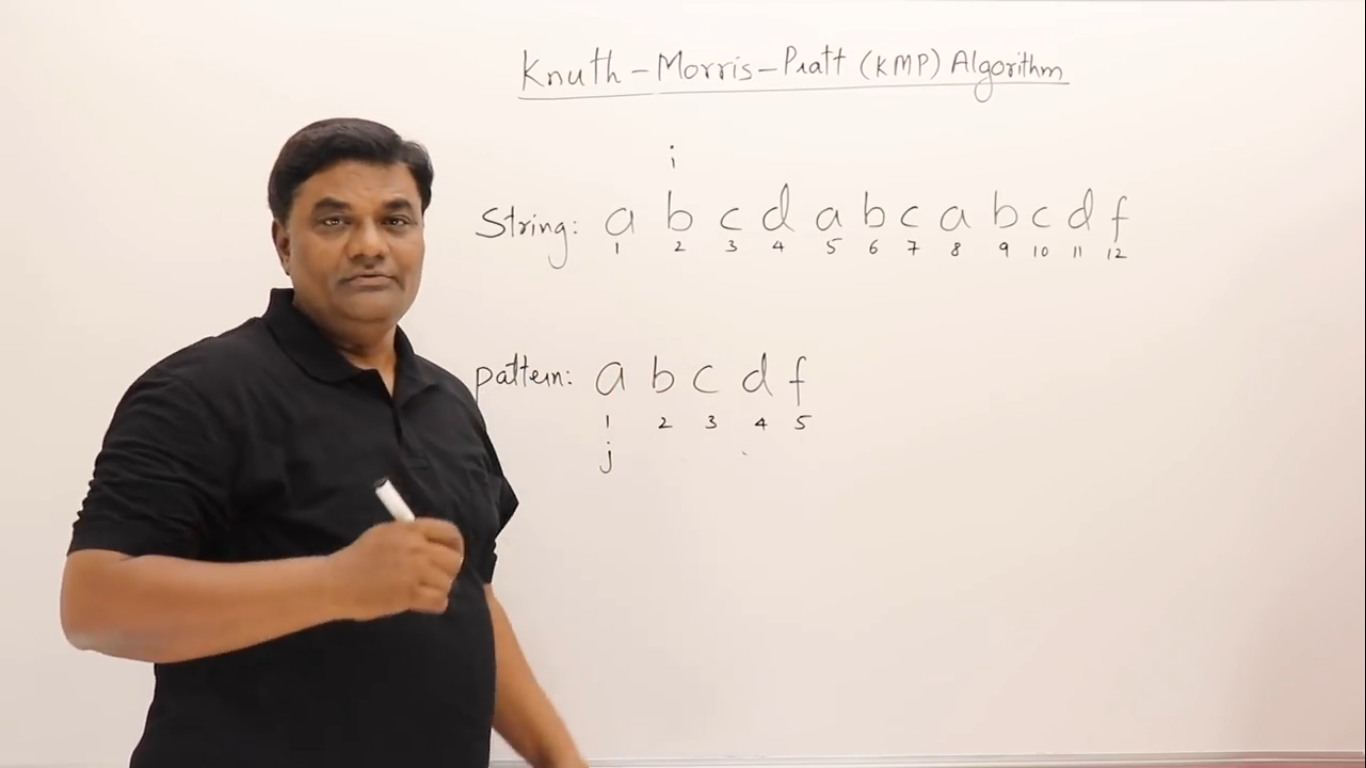 Knuth-Morris-Pratt (KMP) Algorithm
i
String: a b c d a b c a b c d f
1 2 3 4 5 6 7 8 9 10 11 12
pattern: a b c d f
1 2 3 4 5
j